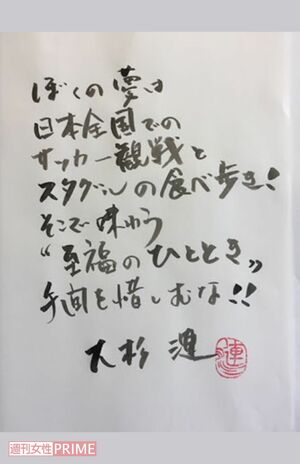 ぼくの夢は
日本全国での
サッカー観戦と
スタグルの食べ歩き!
そこで味わう
“至福のひととき”
手間を惜しむな!!
大杉 漣
漣
週刊女性PRIME